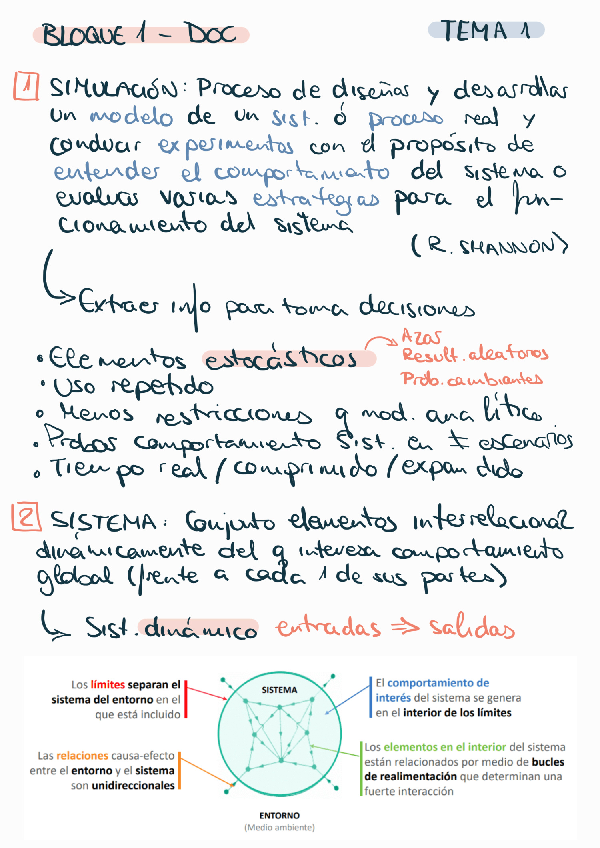 BLOQUE 1 - DOC
TEMA 1
1 SIMULACIÓN: Proceso de diseñar y desarrollar
un modelo de un sist. ó proceso real y
conducir experimentos con el propósito de
entender el comportamiento del sistema o
evaluar varias estrategias para el fun-
cionamiento del sistema
(R. SHANNON)
↳ Extraer info para toma decisiones
• Elementos estocásticos
Azar
Result. aleatorios
Prob. cambiantes
• Uso repetido
• Menos restricciones q mod. analítico
• Probar comportamiento sist. en ≠ escenarios
• Tiempo real / comprimido / expandido
2 SISTEMA: Conjunto elementos interrelacional
dinámicamente del q interesa comportamiento
global (frente a cada 1 de sus partes)
↳ Sist. dinámico entradas ⇒ salidas
Los límites separan el
sistema del entorno en el
que está incluido
SISTEMA
El comportamiento de
interés del sistema se genera
en el interior de los límites
Las relaciones causa-efecto
entre el entorno y el sistema
son unidireccionales
Los elementos en el interior del sistema
están relacionados por medio de bucles
de realimentación que determinan una
fuerte interacción
ENTORNO
(Medio ambiente)